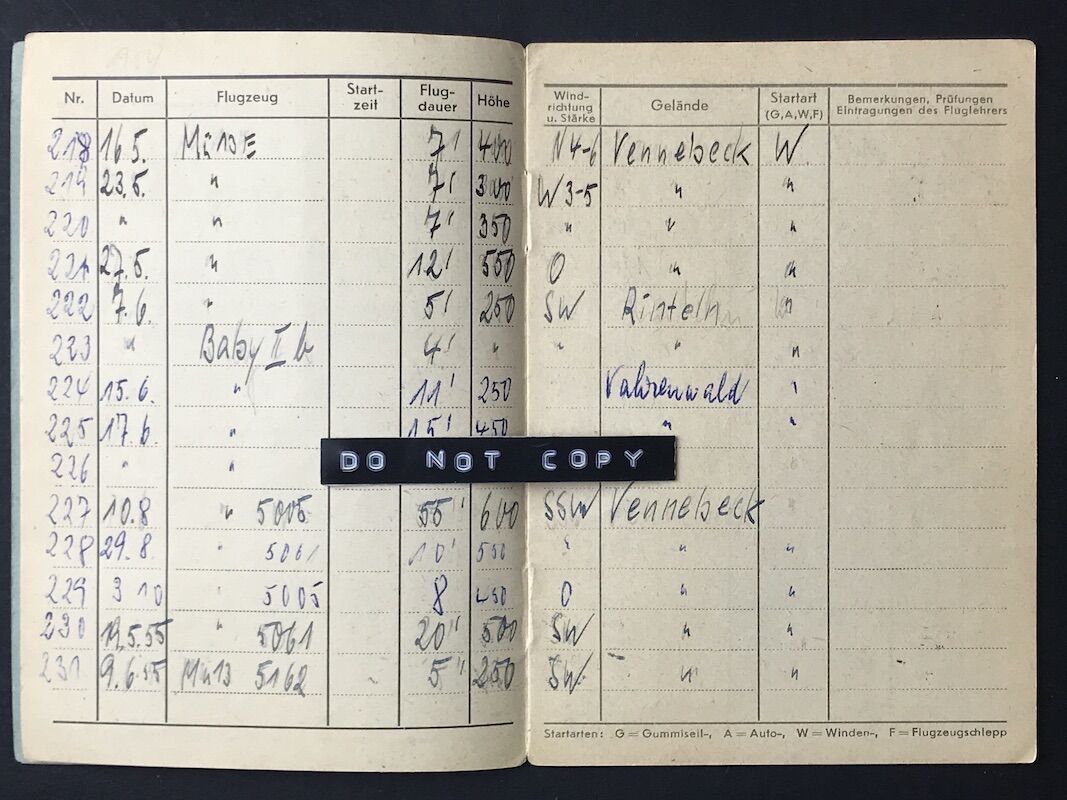 Nr. Datum Flugzeug Start-zeit Flug-dauer Höhe Wind-richtung u. Stärke Gelände Startart (G,A,W,F) Bemerkungen, Prüfungen Eintragungen des Fluglehrers
218 16.5. Mü13E 7' 400 N4-6 Vennebeck W
219 23.5. " 7' 300 W 3-5 " "
220 " " 7' 350 " " "
221 27.5. " 12' 550 O " "
222 7.6. " 5' 250 SW Rinteln "
223 " Baby II b 4' " " " "
224 15.6. " 11' 250 Vahrenwald "
225 17.6 " 15' 450 " "
226 " "
DO NOT COPY
227 10.8 " 5005 55' 600 SSW Vennebeck
228 29.8 " 5061 10' 550 " " "
229 3 10 " 5005 8 450 O " "
230 19.5.55 " 5061 20" 500 SW " "
231 9.6.55 Mü13 5162 5" 250 SW " "
Startarten: G = Gummiseil-, A = Auto-, W = Winden-, F = Flugzeugschlepp